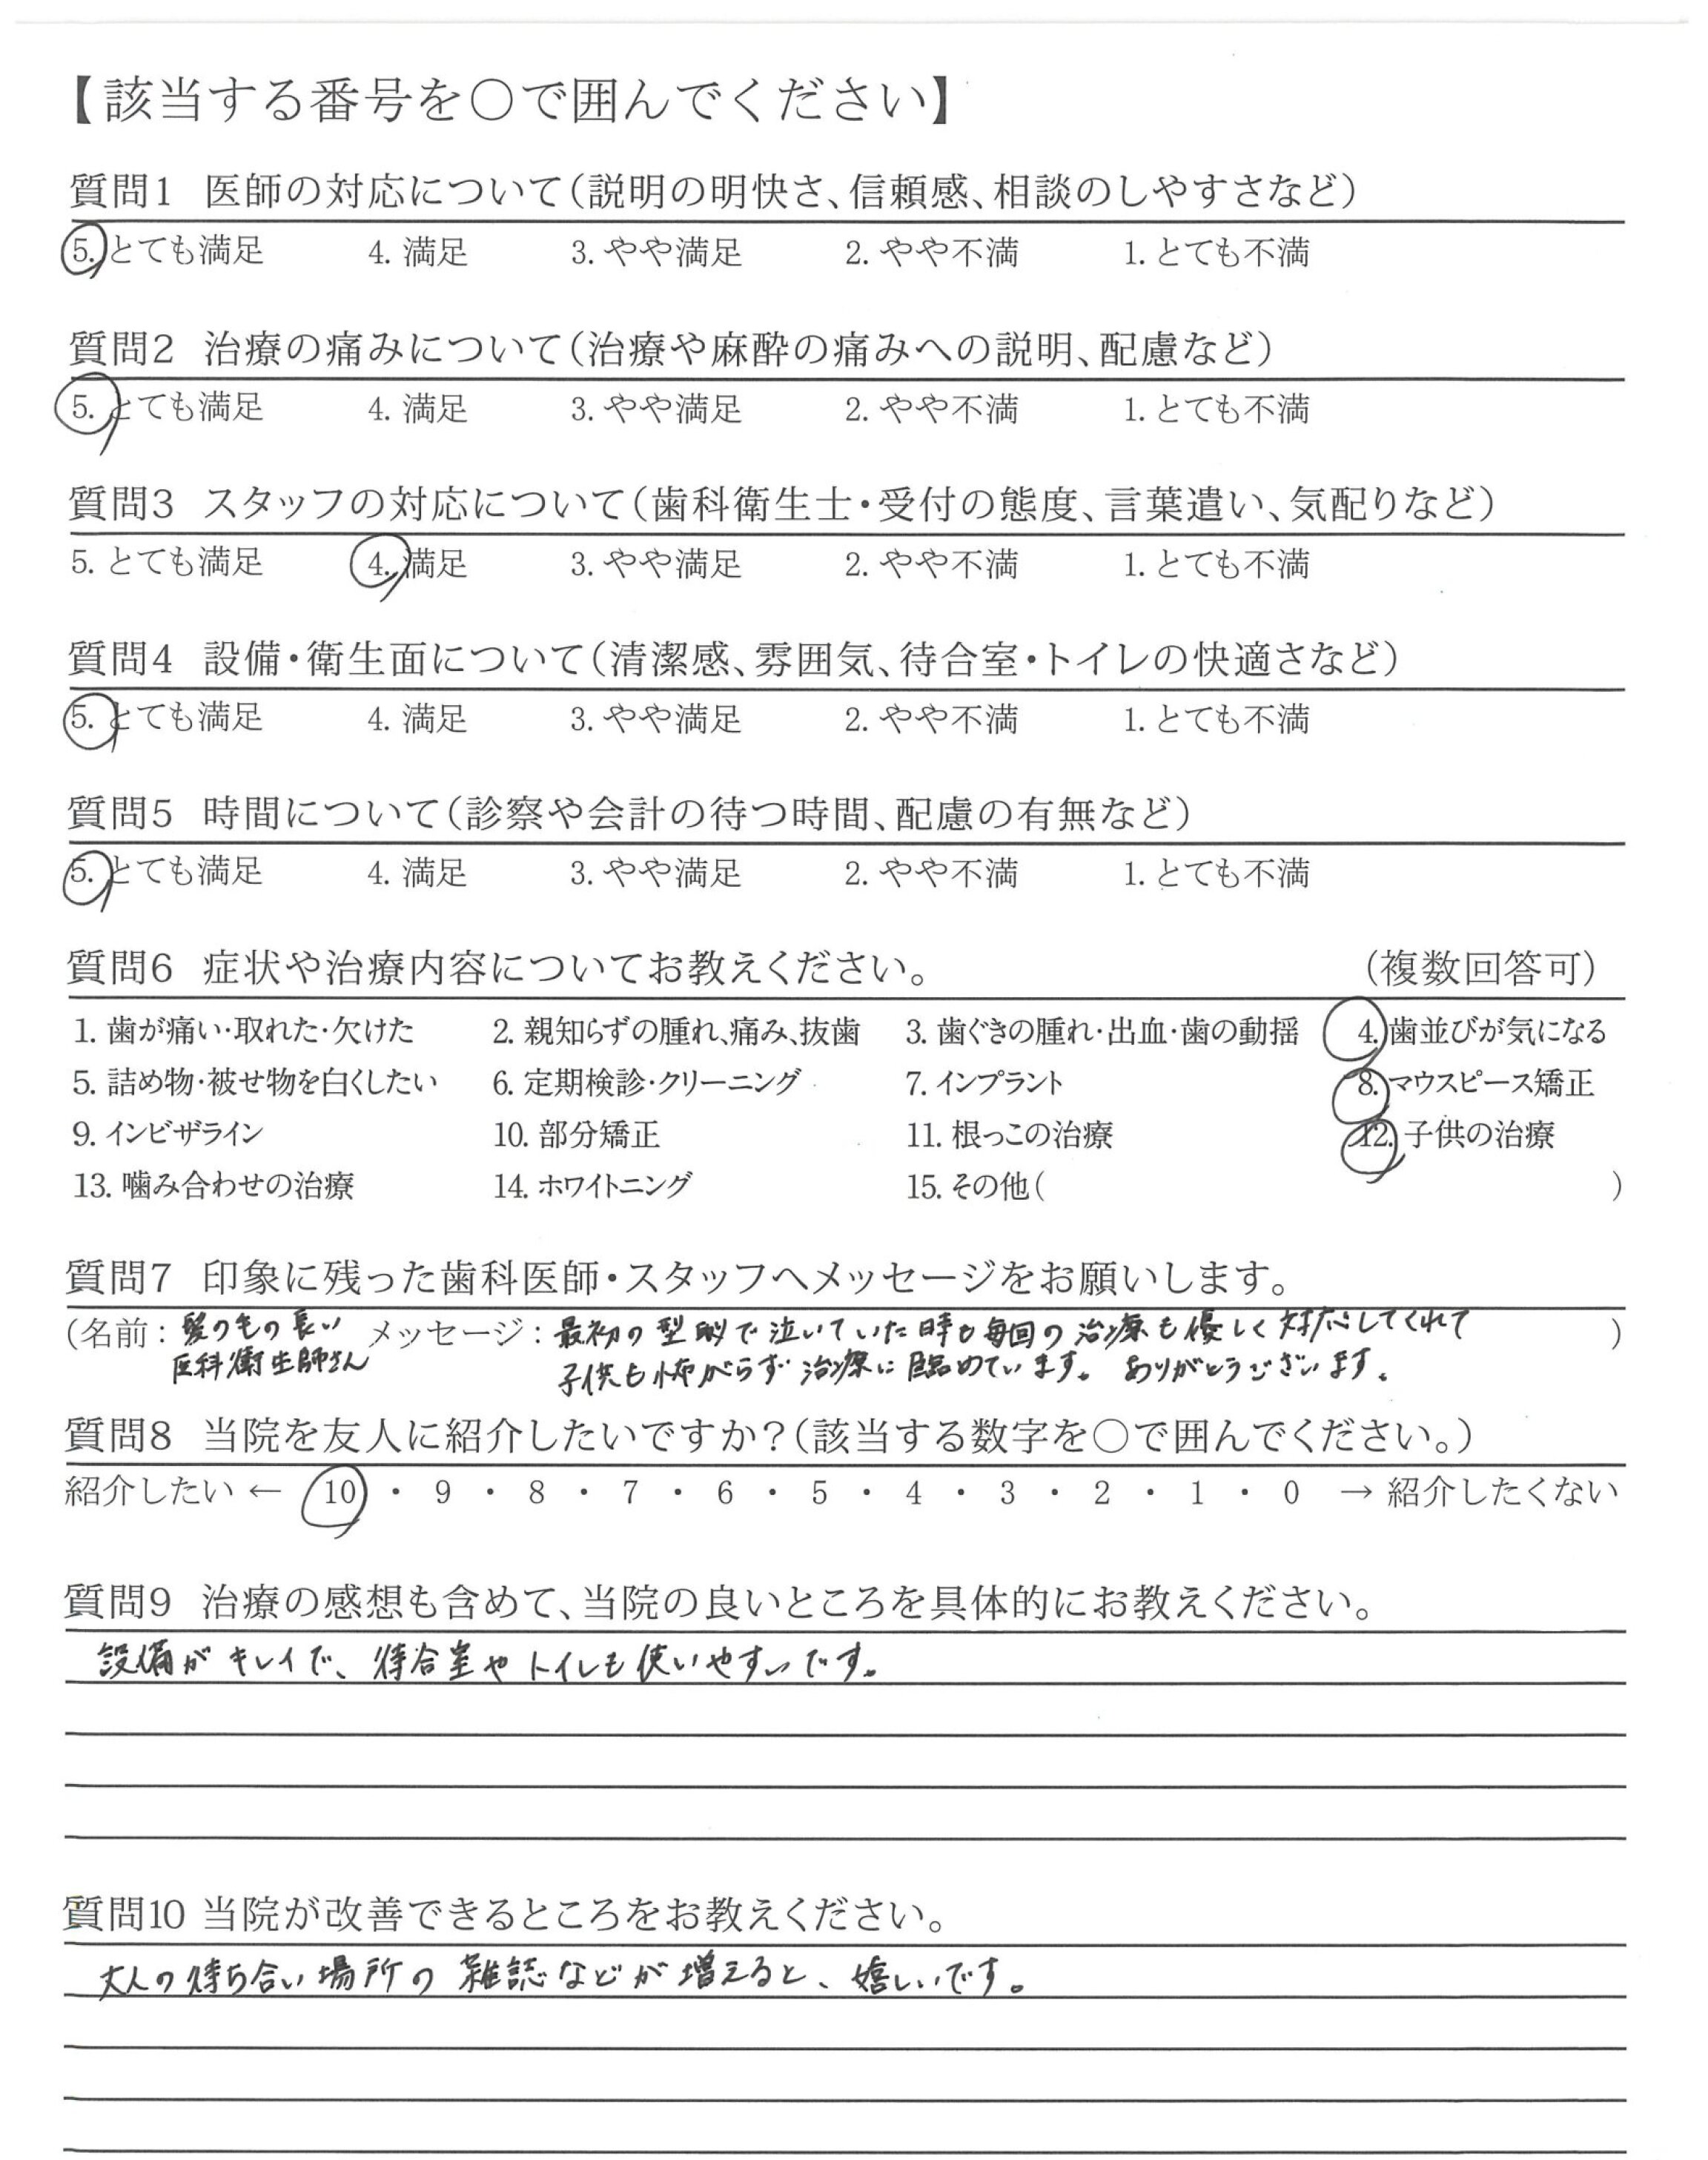 【該当する番号を〇で囲んでください】
質問1 医師の対応について（説明の明快さ、信頼感、相談のしやすさなど）
5. とても満足 4. 満足 3. やや満足 2. やや不満 1. とても不満
質問2 治療の痛みについて（治療や麻酔の痛みへの説明、配慮など）
5. とても満足 4. 満足 3. やや満足 2. やや不満 1. とても不満
質問3 スタッフの対応について（歯科衛生士・受付の態度、言葉遣い、気配りなど）
5. とても満足 4. 満足 3. やや満足 2. やや不満 1. とても不満
質問4 設備・衛生面について（清潔感、雰囲気、待合室・トイレの快適さなど）
5. とても満足 4. 満足 3. やや満足 2. やや不満 1. とても不満
質問5 時間について（診察や会計の待つ時間、配慮の有無など）
5. とても満足 4. 満足 3. やや満足 2. やや不満 1. とても不満
質問6 症状や治療内容についてお教えください。 （複数回答可）
1. 歯が痛い・取れた・欠けた 2. 親知らずの腫れ、痛み、抜歯 3. 歯ぐきの腫れ・出血・歯の動揺 4. 歯並びが気になる
5. 詰め物・被せ物を白くしたい 6. 定期検診・クリーニング 7. インプラント 8. マウスピース矯正
9. インビザライン 10. 部分矯正 11. 根っこの治療 12. 子供の治療
13. 噛み合わせの治療 14. ホワイトニング 15. その他（ ）
質問7 印象に残った歯科医師・スタッフへメッセージをお願いします。
（名前：髪の毛の長い メッセージ：最初の型取で泣いていた時も毎回の治療も優しく対応してくれて ）
医科衛生師さん 子供も怖がらず治療に臨めています。ありがとうございます。
質問8 当院を友人に紹介したいですか？（該当する数字を〇で囲んでください。）
紹介したい ← 10 ・ 9 ・ 8 ・ 7 ・ 6 ・ 5 ・ 4 ・ 3 ・ 2 ・ 1 ・ 0 → 紹介したくない
質問9 治療の感想も含めて、当院の良いところを具体的にお教えください。
設備がキレイで、待合室やトイレも使いやすいです。
質問10 当院が改善できるところをお教えください。
大人の待ち合い場所の雑誌などが増えると、嬉しいです。